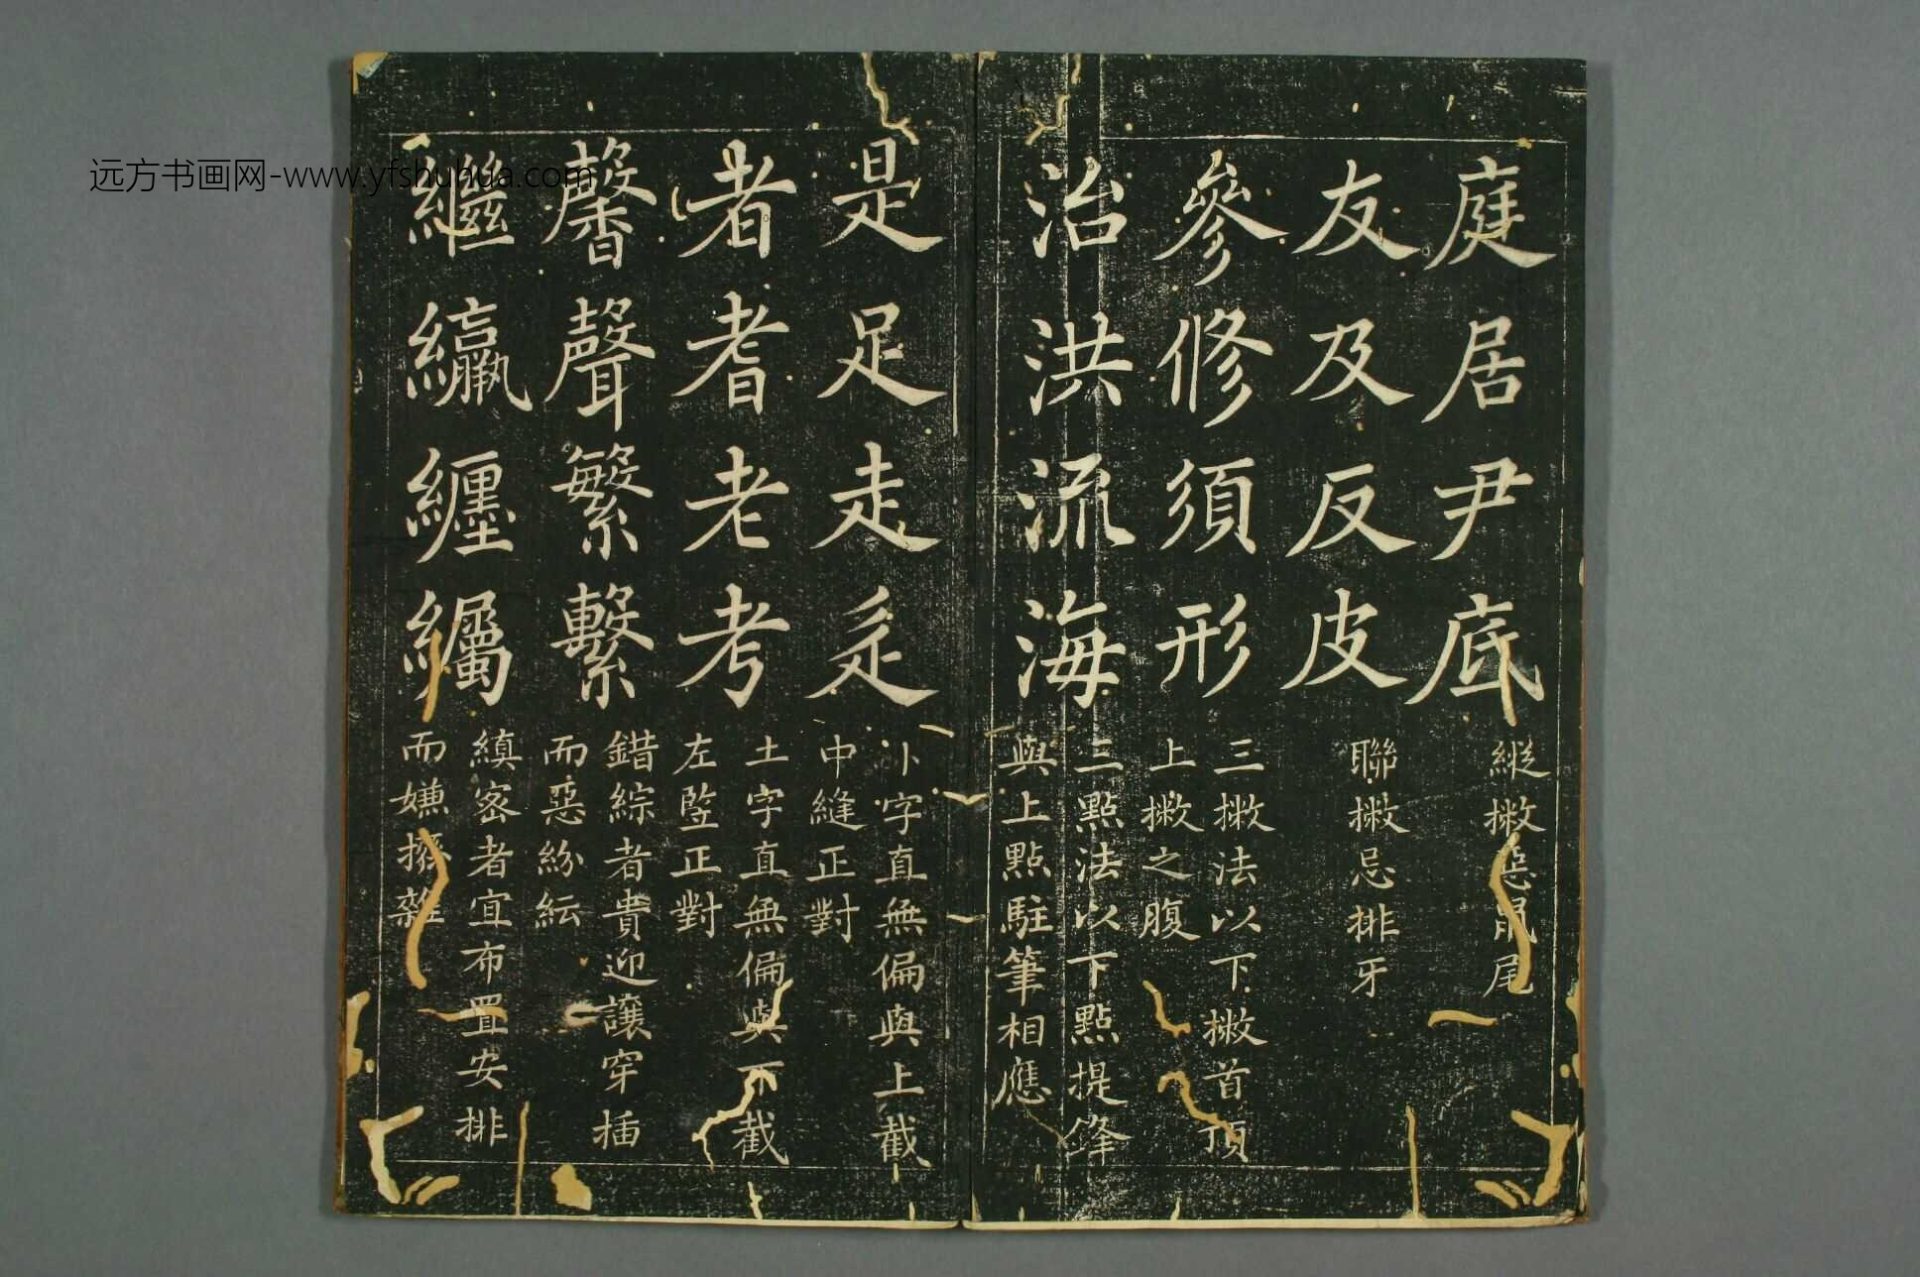 远方书画网-www.yfshuhua.com
庭居尹底
縱撇惡鼠尾
友及反皮
聯撇忌排牙
參修須形
三撇法以下撇首頂
上撇之腹
治洪流海
三點法以下點提鋒
與上點駐筆相應
是足走辵
卜字直無偏與上截
中縫正對
者耆老考
土字直無偏與下截
左竪正對
馨聲繁繫
錯綜者貴迎讓穿插
而惡紛紜
繼纏
縝密者宜布置安排
而嫌撥雜